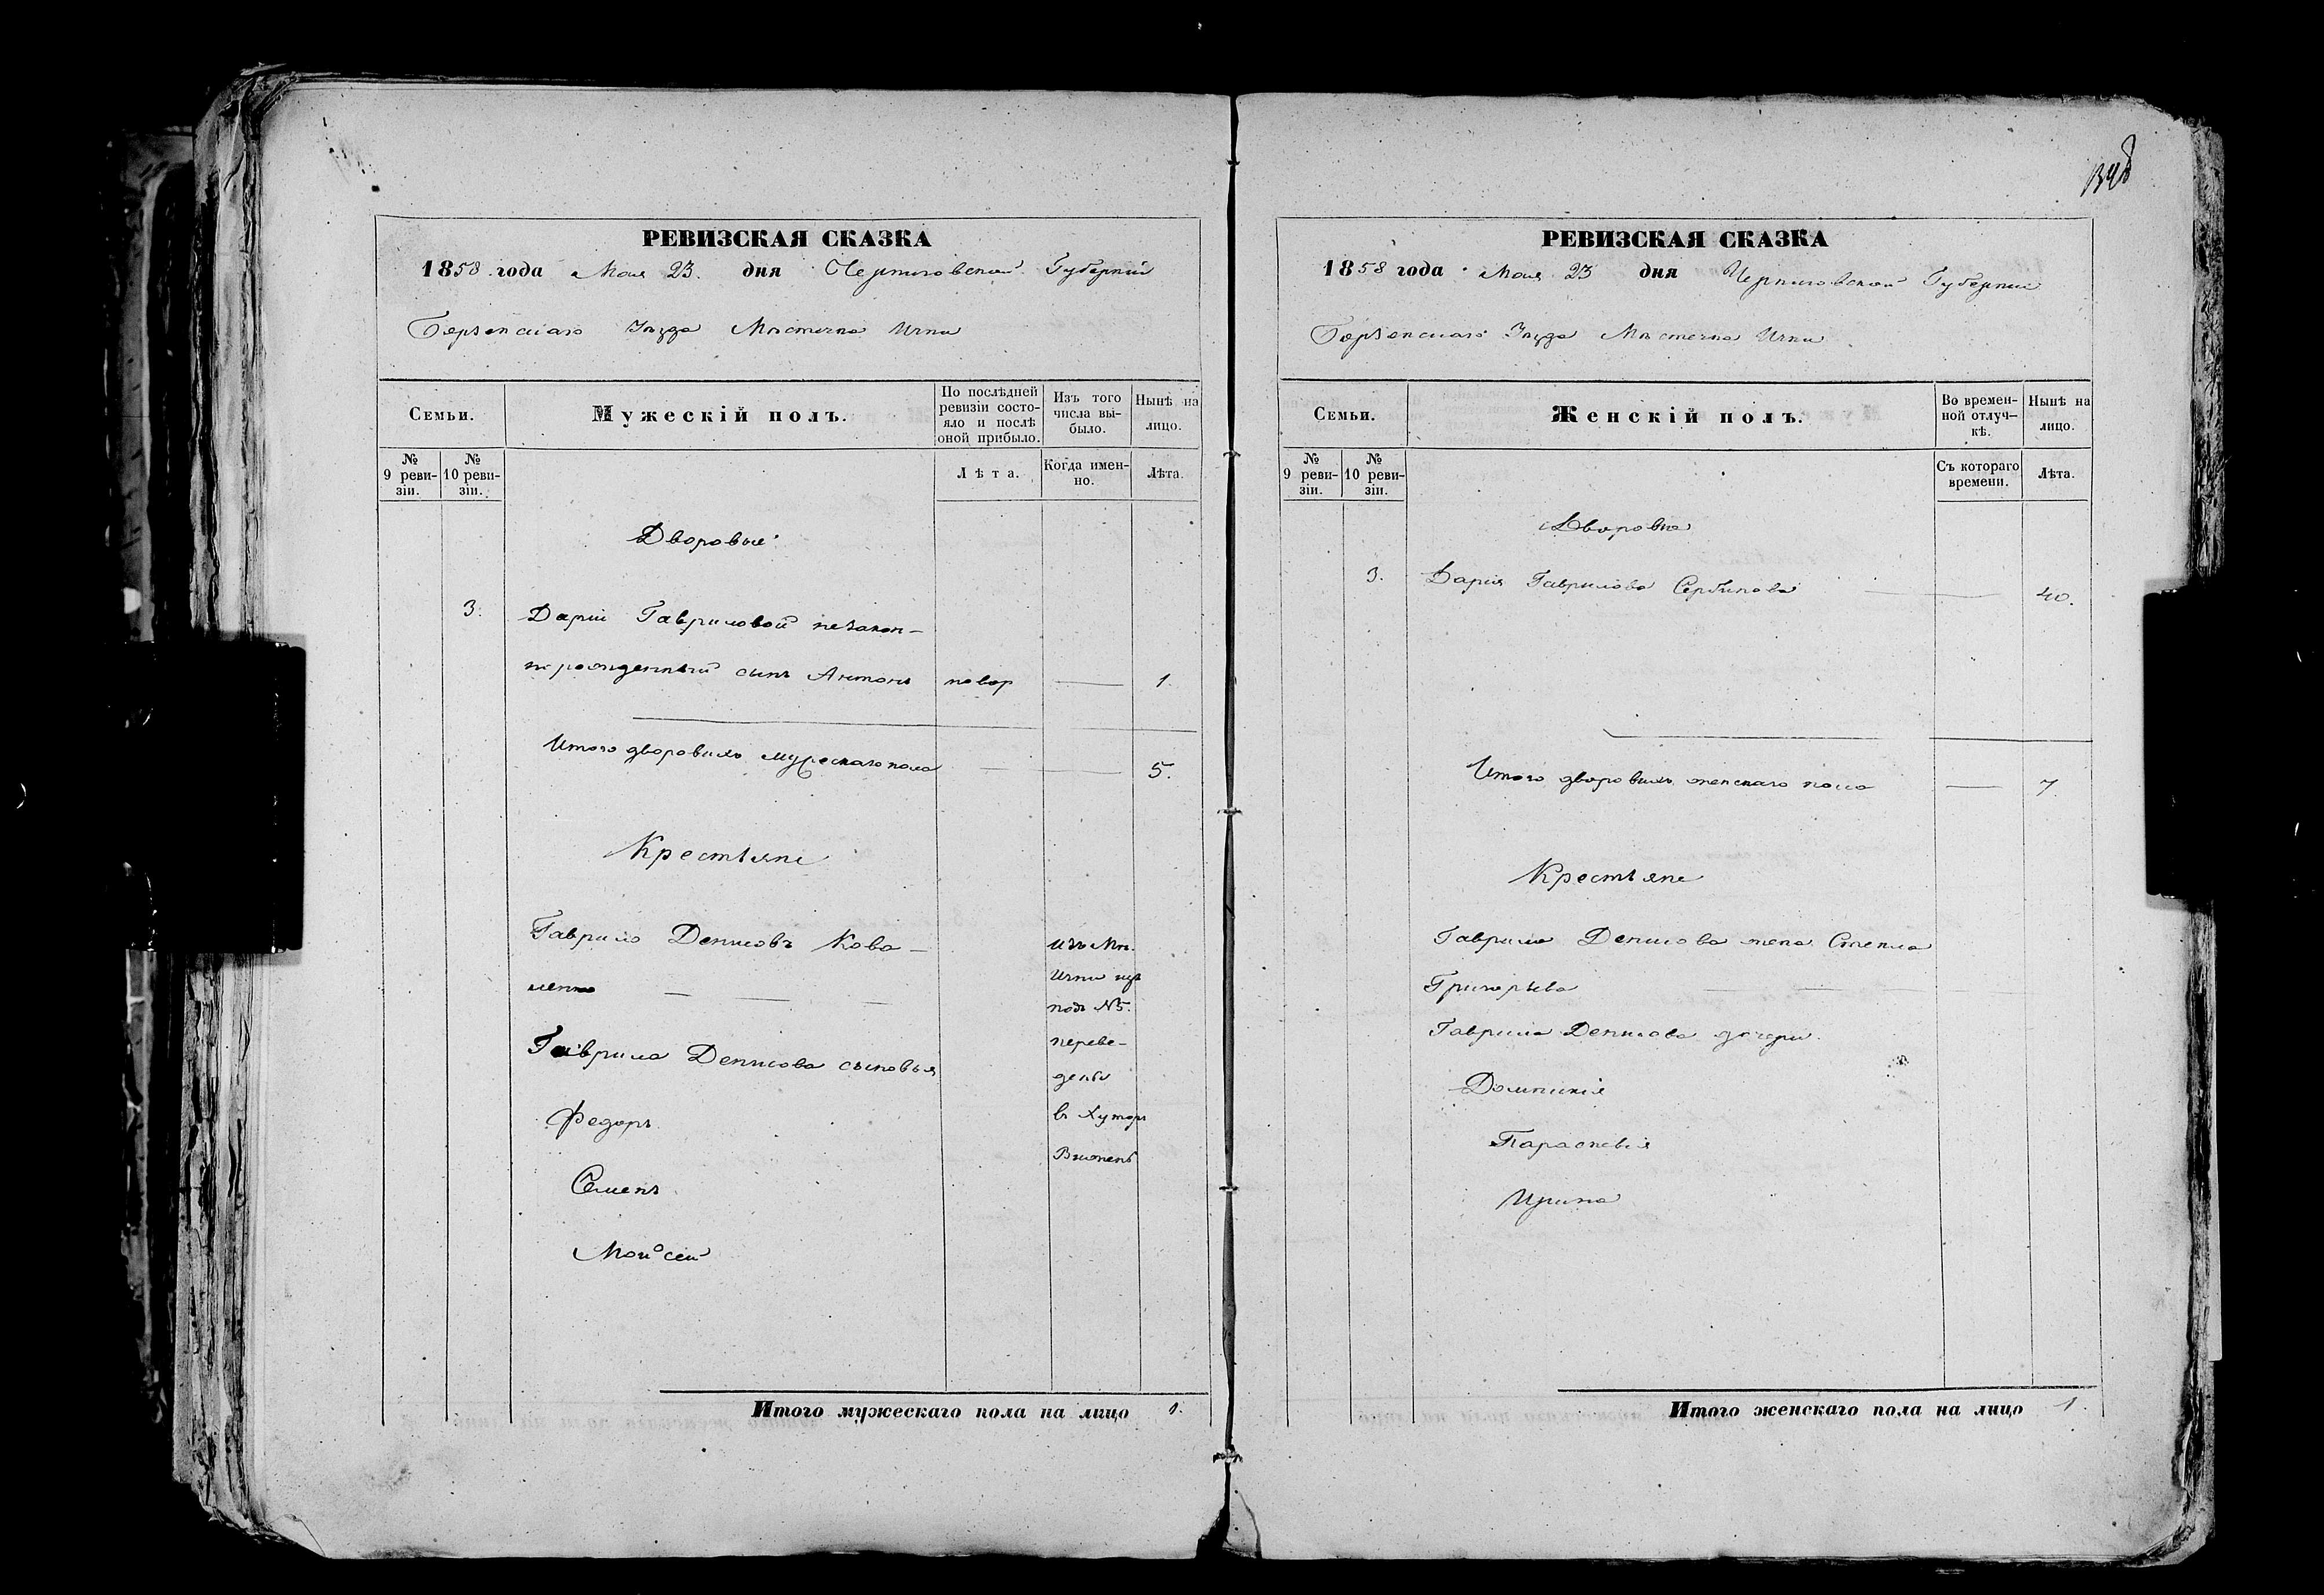 РЕВИЗСКАЯ СКАЗКА
1858 года Мая 23. дня Черниговской Губерніи
Борзенскаго Уѣзда Мѣстечка Ични
Семьи.
Мужескій полъ.
По послѣдней ревизіи состояло и послѣ оной прибыло.
Изъ того числа выбыло.
Нынѣ на лицо.
№ 9 ревизіи.
№ 10 ревизіи.
Лѣта.
Когда именно.
Лѣта.
Дворовые
3. Дарьи Гавриловой незакон-
норожденный сынъ Антонъ новор — 1.
Итого дворовыхъ мужескаго пола — — 5.
Крестьяне
Гаврило Денисовъ Кова-
ленко — — —
Гаврила Денисова сыновья
Федоръ
Семенъ
Мойсей
изъ Мѣ.
Ични
подъ №5.
переве-
дены
въ Хуторъ
Итого мужескаго пола на лицо 1.
134
РЕВИЗСКАЯ СКАЗКА
1858 года Мая 23 дня Черниговской Губерніи
Борзенскаго Уѣзда Мѣстечка Ични
Семьи.
Женскій полъ.
Во временной отлучкѣ.
Нынѣ на лицо.
№ 9 ревизіи.
№ 10 ревизіи.
Съ котораго времени.
Лѣта.
Дворовые
3. Дарія Гаврилова Сербинова — — 40.
Итого дворовыхъ женскаго пола — 7
Крестьяне
Гаврила Денисова жена Степа
Григорьева
Гаврила Денисова дочери
Домникія
Параскевія
Ирина
Итого женскаго пола на лицо 1.